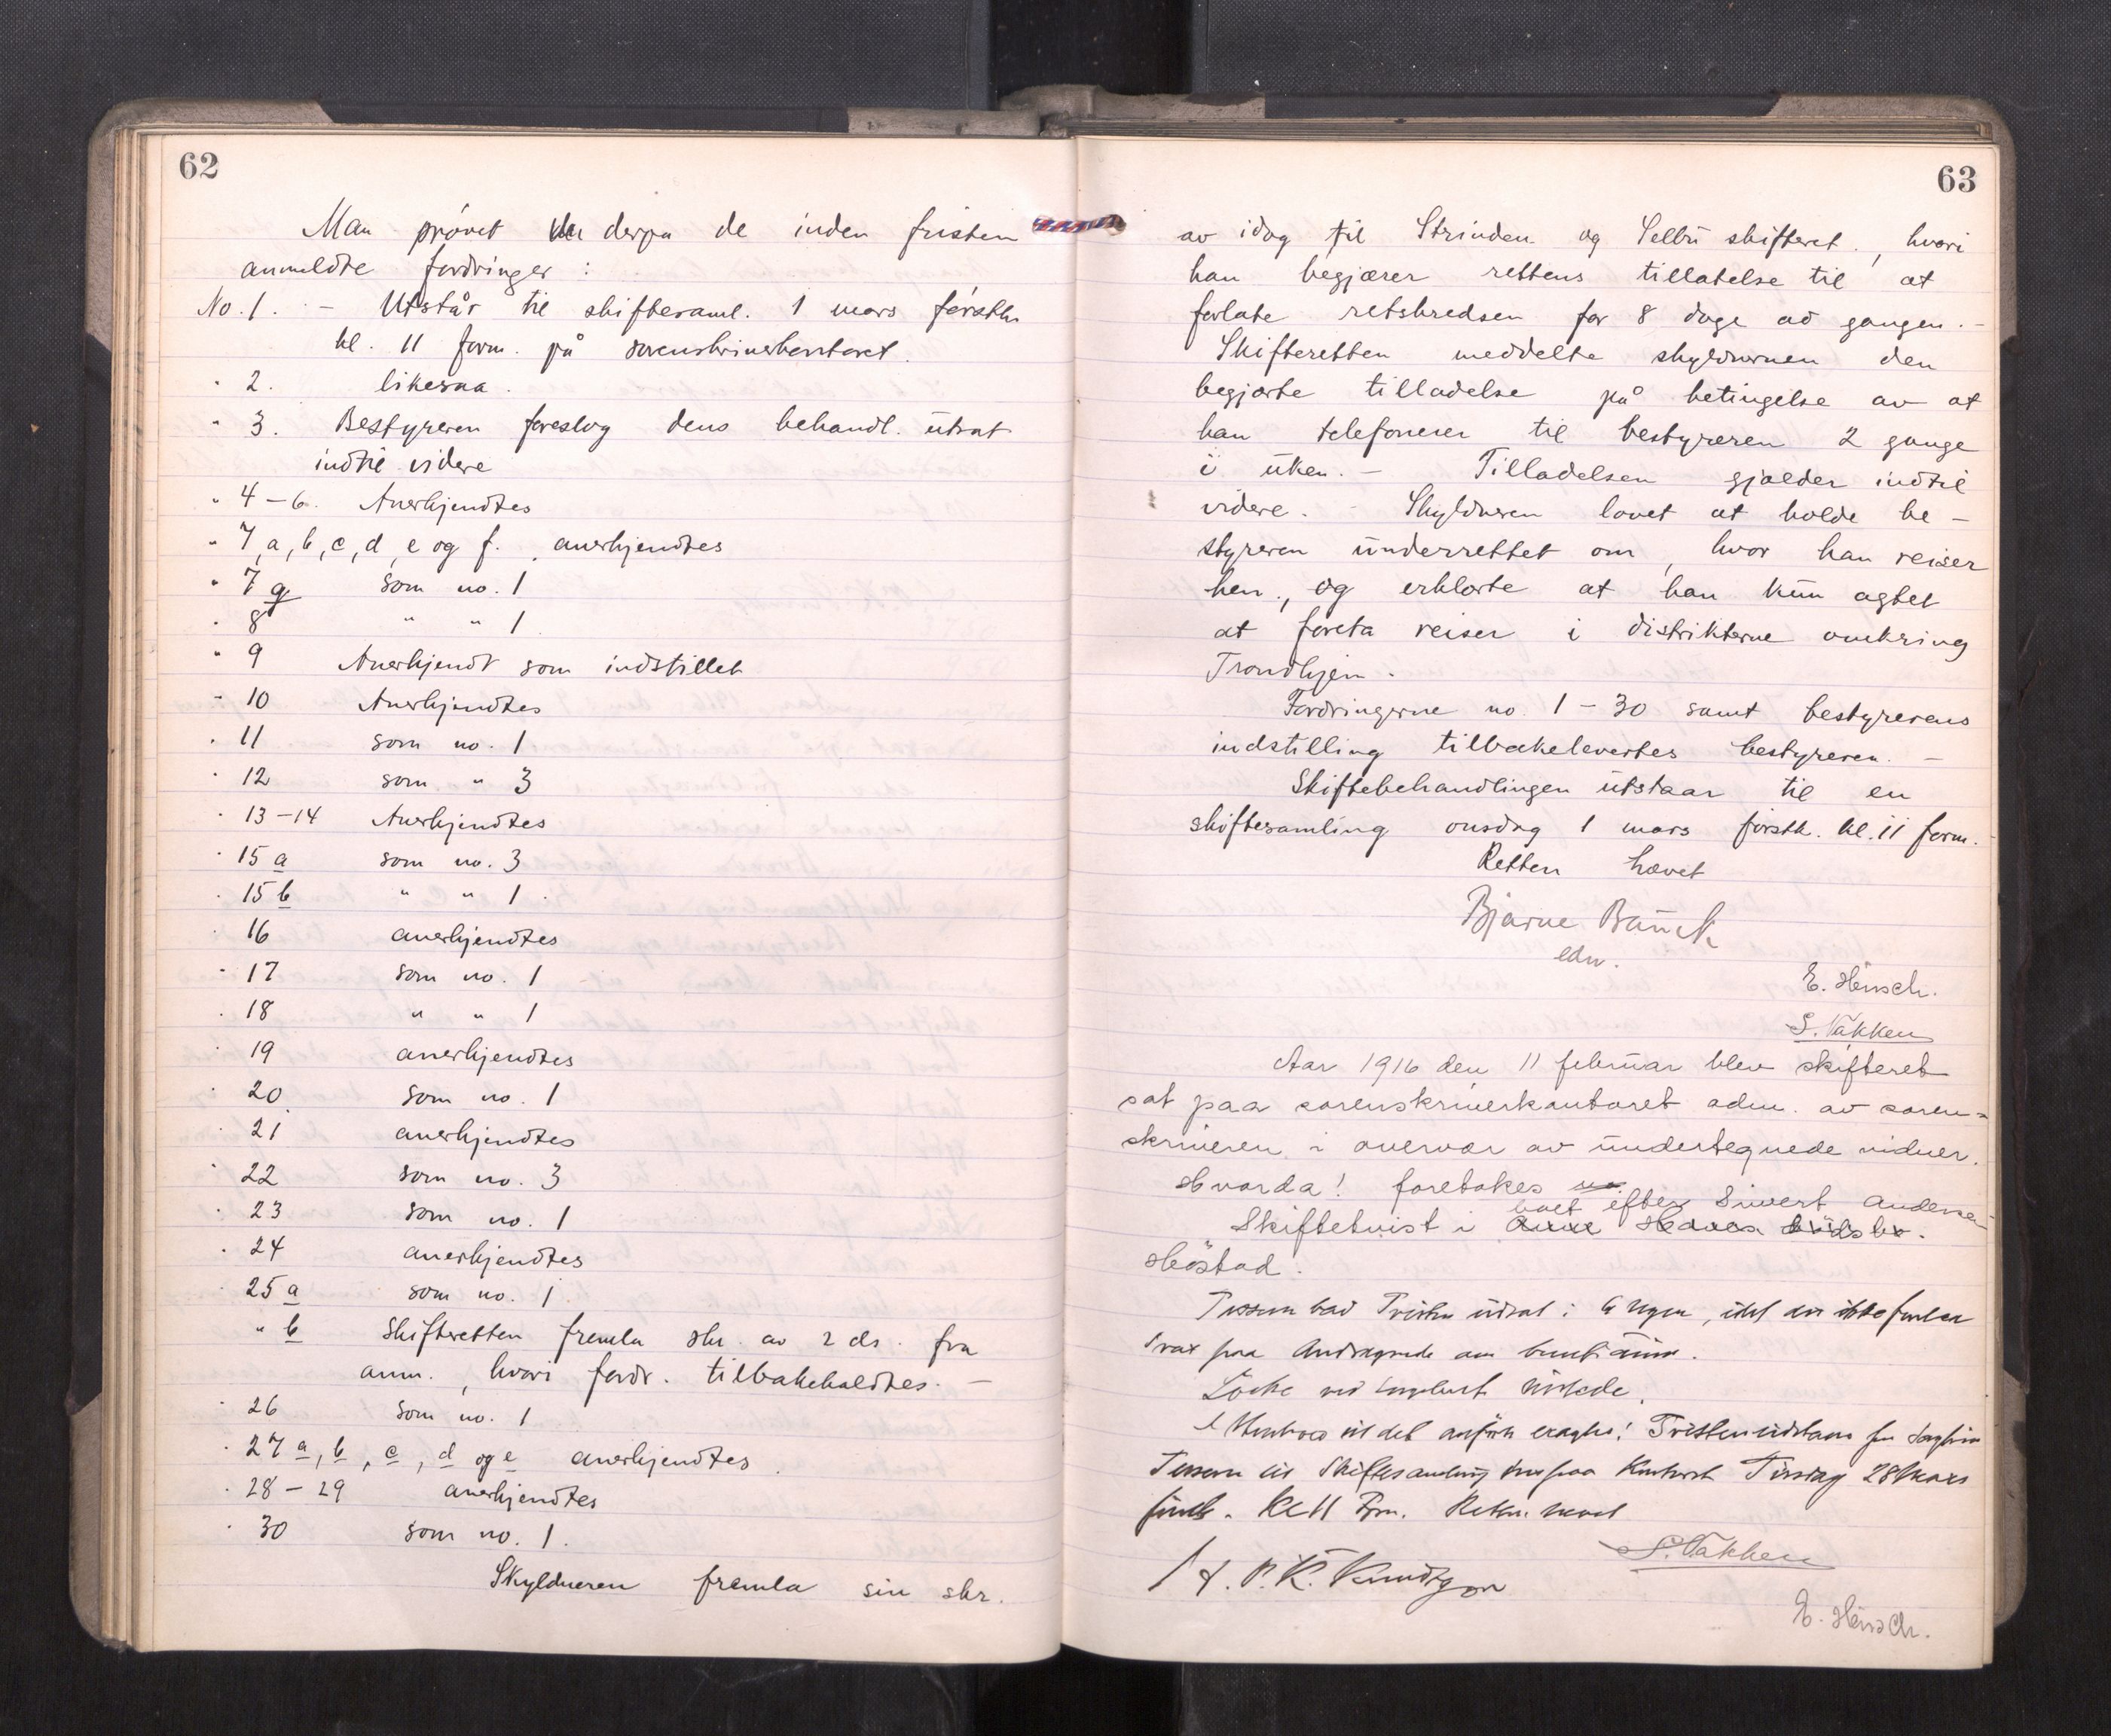 62
Man prøvet derpa de inden fristen
anmeldte fordringer :
No. 1. - Utstår til skiftesaml. 1 mars førstk.
kl. 11 form. på sorenskriverkontoret.
" 2. likesaa.
" 3. Bestyreren foreslog dens behandl. utsat
indtil videre
" 4-6. Anerkjendtes
" 7, a, b, c, d, e og f. anerkjendtes
" 7 g som no. 1
" 8 " " 1
" 9 Anerkjendt som indstillet
" 10 Anerkjendtes
" 11 som no. 1
" 12 som " 3
" 13-14 Anerkjendtes
" 15 a som no. 3
" 15 b " " 1.
" 16 anerkjendtes
" 17 som no. 1
" 18 " " 1
" 19 anerkjendtes
" 20 som no. 1
" 21 anerkjendtes
" 22 som no. 3
" 23 som no. 1
" 24 anerkjendtes
" 25 a som no. 1
" b Skifteretten fremla skr. av 2 ds. fra
anm., hvori fordr. tilbakeholdtes. -
" 26 som no. 1
" 27 a, b, c, d og e anerkjendtes.
" 28-29 anerkjendtes
" 30 som no. 1.
Skyldneren fremla sin skr.
63
av idag til Strinden og Selbu skifteret, hvori
han begjærer rettens tillatelse til at
forlate retskredsen for 8 dage ad gangen. -
Skifteretten meddelte skyldneren den
begjærte tilladelse på betingelse av at
han telefonerer til bestyreren 2 gange
i uken. - Tilladelsen gjælder indtil
videre. - Skyldneren lovet at holde be-
styreren underrettet om, hvor han reiser
hen., og erklærte at han kun agtet
at foreta reiser i distrikterne omkring
Trondhjem.
Fordringerne no. 1-30 samt bestyrerens
indstilling tilbakelevertes bestyreren. -
Skiftebehandlingen utstaar til en
skiftesamling onsdag 1 mars førstk. kl. 11 form.
Retten hævet
Bjarne Bauck
edv.
E. Hinsch.
S. Vakken
Aar 1916 den 11 februar blev skifteret
sat paa sorenskriverkontoret adm. av soren=
skriveren i overvær av undertegnede vidner.
Hvorda! foretokes
boet efter Sivert Andersen
Skiftetvist i
Høstad.
Tvisten utsat i 6 uger, idet ikke
svar paa Andragende om
Løcke
til det anførte eragtes! Tvisten utstaar
til Skiftesamling paa Kontoret Tirsdag 28 Mars
førstk. Kl 11 Fm. Retten hævet
P. K. Knudtzon
S. Vakken
E. Hinsch.